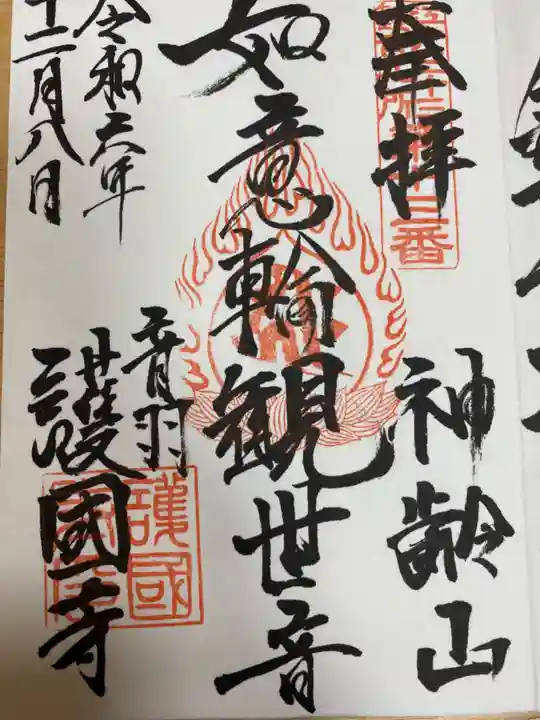 奉拝
神齢山
如意輪観世音
令和六年
十二月八日
音羽
護國寺
十三番
護國